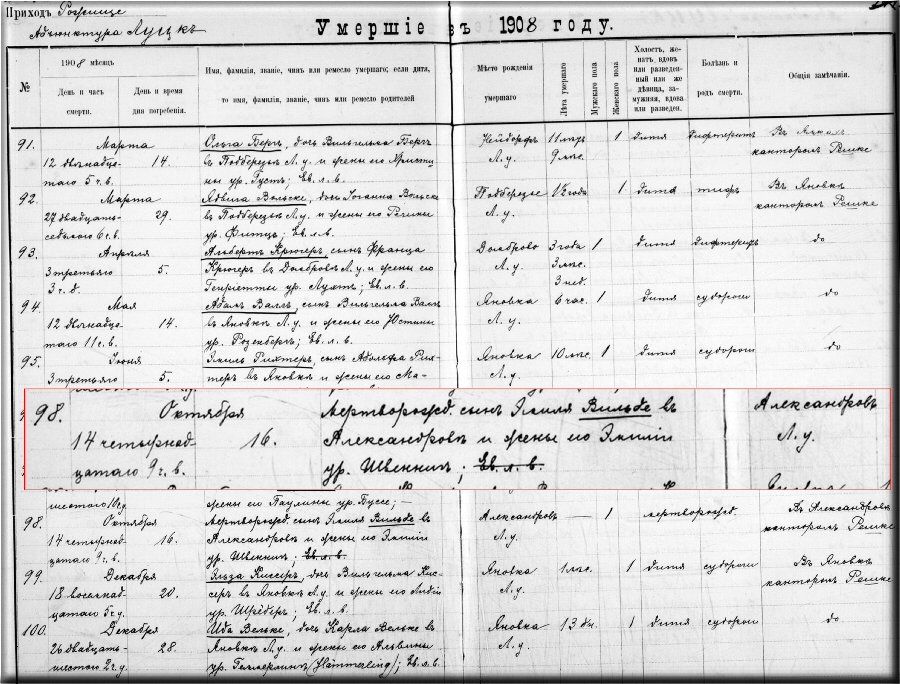 Приходъ Рожище
Адъюнктура Луцкъ
Умершіе въ 1908 году.
№
1908 мѣсяцъ
День и часъ смерти.
День и время дня погребенія.
Имя, фамилія, званіе, чинъ или ремесло умершаго; если дитя,
то имя, фамилія, званіе, чинъ или ремесло родителей
Мѣсто рожденія
умершаго
Лѣта умершаго
Мужскаго пола
Женскаго пола
Холостъ, женатъ, вдовъ или разведенный или же дѣвица, замужняя, вдова или разведен.
Болѣзнь и
родъ смерти.
Общія замѣчанія.
91. Марта Ольга Бергъ, дочь Вильгельма Бергъ Нейдорфъ 1 дитя дифтеритъ Въ
12 двѣнадца- 14. въ Подберезьѣ Л. у. и жены его Кристи- Л. у. 9 мѣс. канторомъ Решке
таго 5 ч. в. ны ур. Густъ; Ев. л. в.
92. Марта Ядвига Вольске, дочь Іоганна Вольске Подберезье 1/2 года 1 дитя тифъ Въ Яновкѣ
27 двадцать- 29. въ Подберезьѣ Л. у. и жены его Регины Л. у. канторомъ Решке
седьмого 6 ч. в. ур. Фитцъ; Ев. л. в.
93. Апрѣля Альбертъ Крюгеръ, сынъ Франца Домброво 3 года 1 дитя дифтеритъ до
3 третьяго 5. Крюгеръ въ Домбровѣ Л. у. и жены его Л. у. 3 мѣс.
3 ч. д. Генріетты ур. Лухтъ; Ев. л. в. 3 нед.
94. Мая Адамъ Валь, сынъ Вильгельма Валь Яновка 6 час. 1 дитя судороги до
12 двѣнадца- 14. въ Яновкѣ Л. у. и жены его Юстины Л. у.
таго 11 ч. в. ур. Розенбергъ; Ев. л. в.
95. Іюня Эмиль Рихтеръ, сынъ Адольфа Рих- Яновка 10 мѣс. 1 дитя судороги до
3 третьяго 5. теръ въ Яновкѣ и жены его Ма- Л. у.
98. Октября мертворожд. сынъ Эмиля Вильде въ Александровъ
14 четырнад- 16. Александровѣ и жены его Эмиліи Л. у.
цатаго 9 ч. в. ур. Швенкъ; Ев. л. в.
шестого 10 ч. жены его Паулины ур. Буссе; —
98. Октября мертворожд. сынъ Эмиля Вильде въ Александровъ — 1 мертворожд. Въ Александровѣ
14 четырнад- 16. Александровѣ и жены его Эмиліи Л. у. канторомъ Решке
цатаго 9 ч. в. ур. Швенкъ; Ев. л. в.
99. Декабря Эльза Киссеръ, дочь Вильгельма Кис- Яновка 1 мѣс. 1 дитя судороги Въ Яновкѣ
18 восемнад- 20. серъ въ Яновкѣ Л. у. и жены его Лидіи Л. у. канторомъ Решке
цатаго 5 ч. у. ур. Шрёдеръ; Ев. л. в.
100. Декабря Ида Вельке, дочь Карла Вельке въ Яновка 13 дн. 1 дитя судороги до
26 двадцать- 28. Яновкѣ Л. у. и жены его Альвины Л. у.
шестого 2 ч. у. ур. Геммерлингъ (Hämmerling); Ев. л. в.